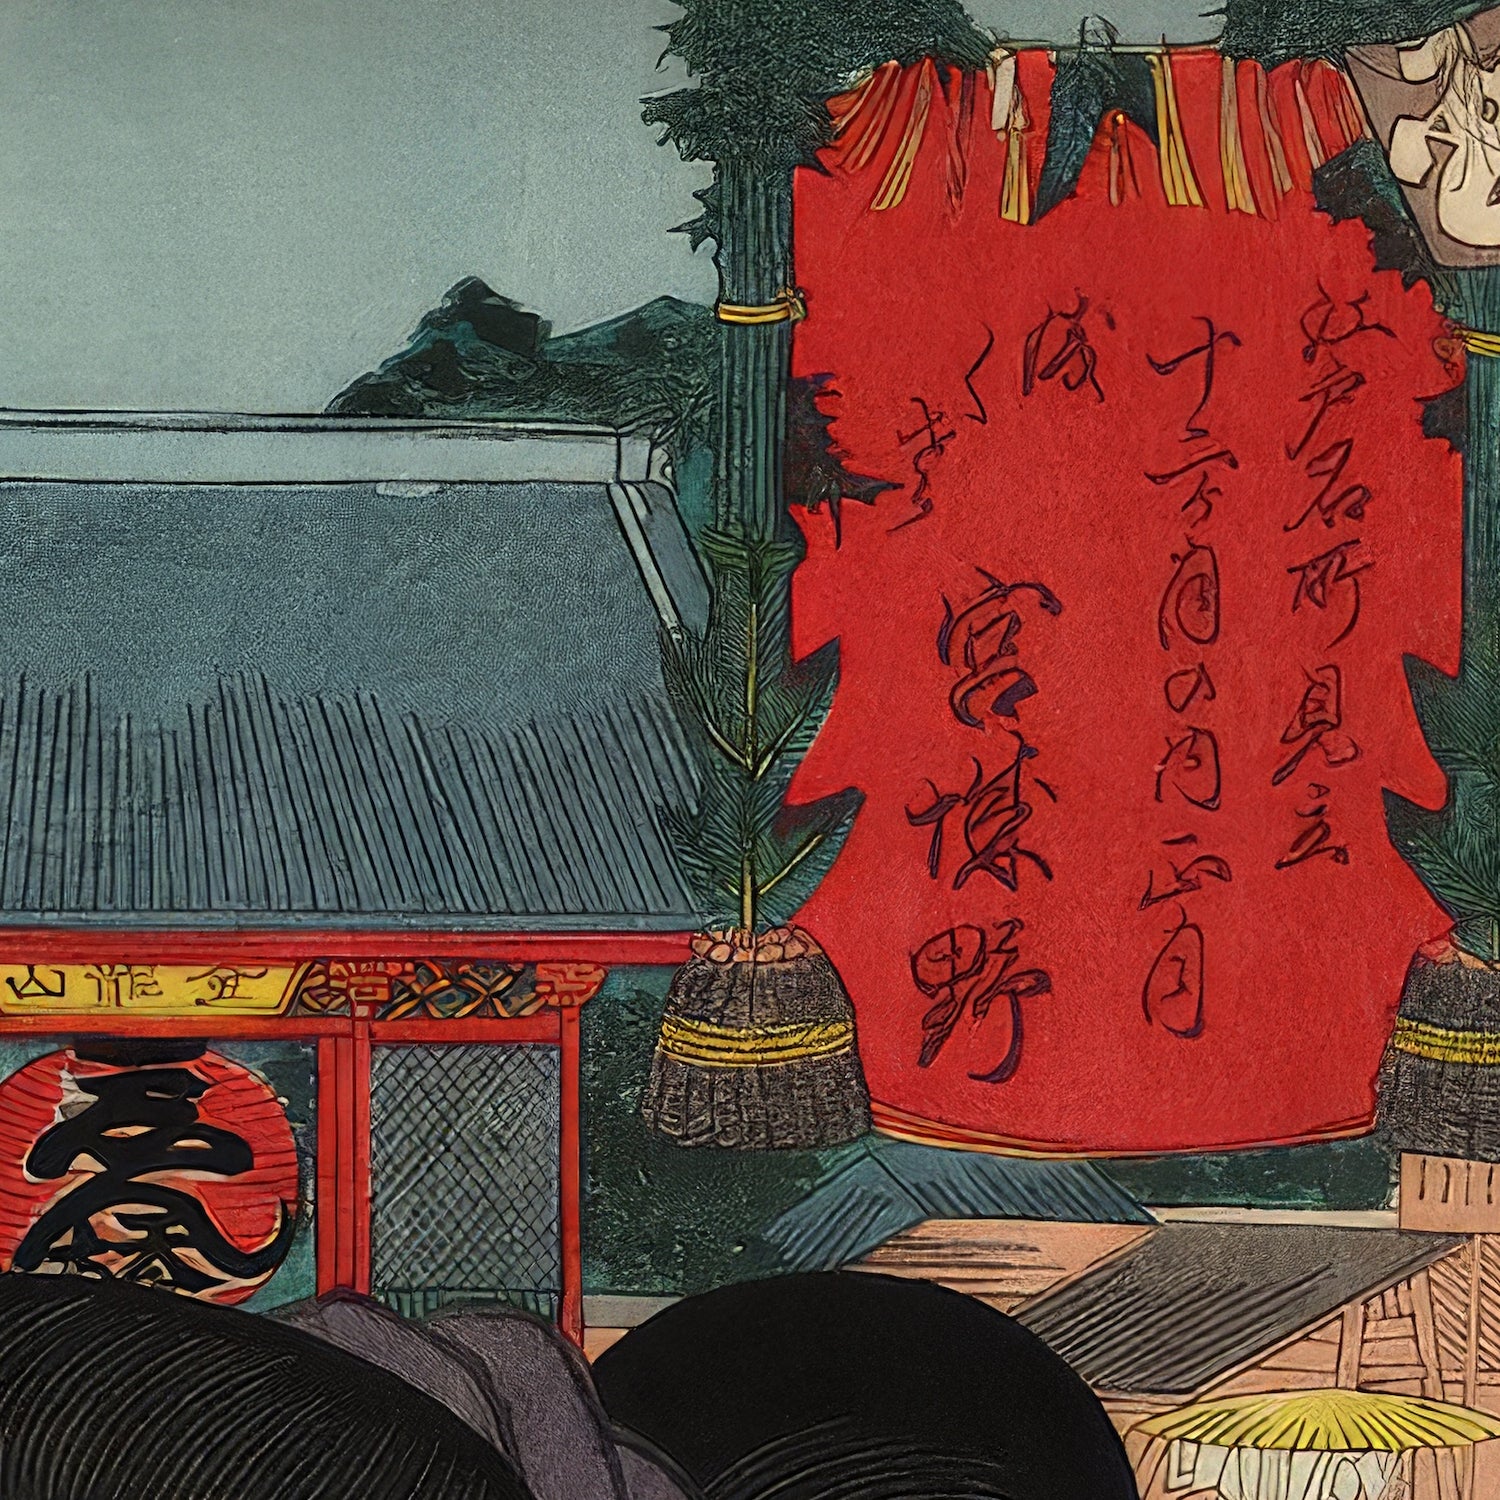 江戸名所見立
十二ヶ月の内正月
浅くさ
宮城野
金龍山